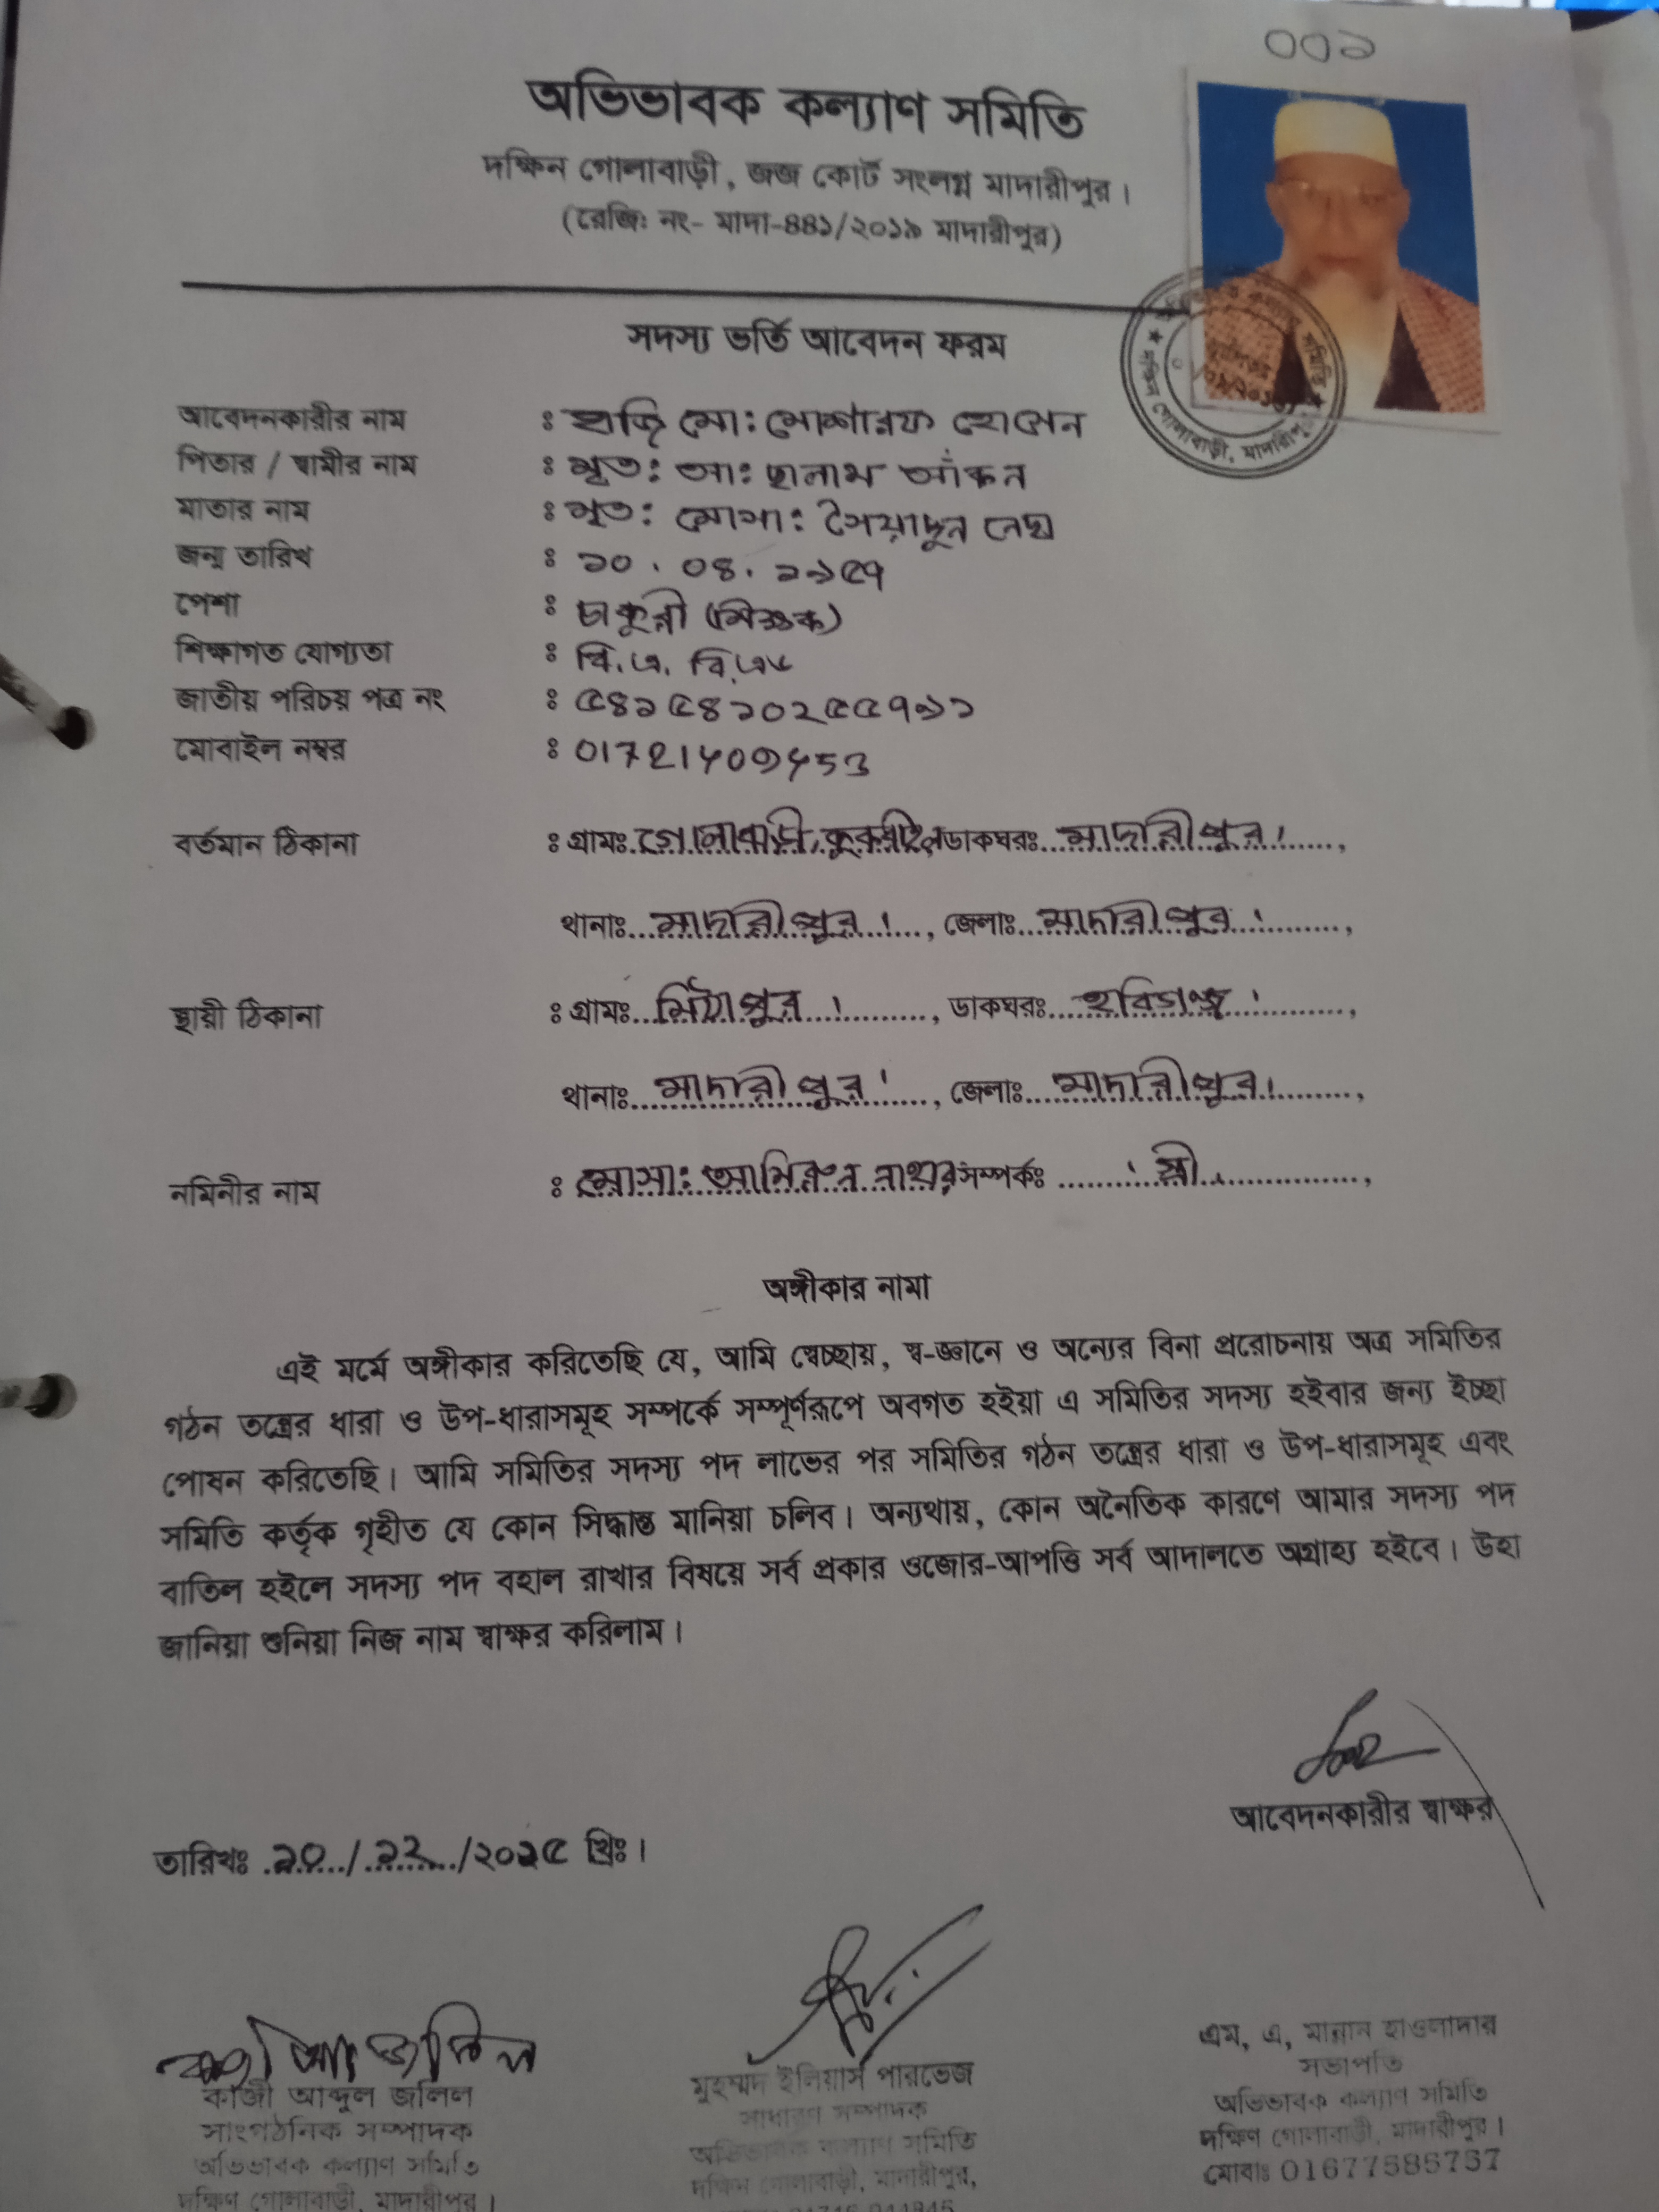 ০০১
অভিভাবক কল্যাণ সমিতি
দক্ষিন গোলাবাড়ী, জজ কোর্ট সংলগ্ন মাদারীপুর।
(রেজিঃ নং- মাদা-৪৪১/২০১৯ মাদারীপুর)
সদস্য ভর্তি আবেদন ফরম
আবেদনকারীর নাম : হাজি মো: মোশারফ হোসেন
পিতার / স্বামীর নাম : মৃত: আ: ছালাম আঁকন
মাতার নাম : মৃত: মোসা: সৈয়াদুন নেছা
জন্ম তারিখ : ১০.০৪.১৯৫৭
পেশা : চাকুরী (শিক্ষক)
শিক্ষাগত যোগ্যতা : বি.এ. বি.এড
জাতীয় পরিচয় পত্র নং : ৫৪১৫৪১০২৫৫৭৯১
মোবাইল নম্বর :
বর্তমান ঠিকানা : গ্রামঃ গোলাবাড়ী, কুকরাইল ডাকঘরঃ মাদারীপুর।,
থানাঃ মাদারীপুর।, জেলাঃ মাদারীপুর।,
স্থায়ী ঠিকানা : গ্রামঃ মিঠাপুর।, ডাকঘরঃ হবিগঞ্জ।,
থানাঃ মাদারীপুর।, জেলাঃ মাদারীপুর।,
নমিনীর নাম : মোসা: সম্পর্কঃ স্ত্রী,
অঙ্গীকার নামা
এই মর্মে অঙ্গীকার করিতেছি যে, আমি স্বেচ্ছায়, স্ব-জ্ঞানে ও অন্যের বিনা প্ররোচনায় অত্র সমিতির
গঠন তন্ত্রের ধারা ও উপ-ধারাসমূহ সম্পর্কে সম্পূর্ণরূপে অবগত হইয়া এ সমিতির সদস্য হইবার জন্য ইচ্ছা
পোষন করিতেছি। আমি সমিতির সদস্য পদ লাভের পর সমিতির গঠন তন্ত্রের ধারা ও উপ-ধারাসমূহ এবং
সমিতি কর্তৃক গৃহীত যে কোন সিদ্ধান্ত মানিয়া চলিব। অন্যথায়, কোন অনৈতিক কারণে আমার সদস্য পদ
বাতিল হইলে সদস্য পদ বহাল রাখার বিষয়ে সর্ব প্রকার ওজোর-আপত্তি সর্ব আদালতে অগ্রাহ্য হইবে। উহা
জানিয়া শুনিয়া নিজ নাম স্বাক্ষর করিলাম।
আবেদনকারীর স্বাক্ষর
তারিখঃ ১০/১২/২০১৫ খ্রিঃ।
কাজী আব্দুল জলিল
সাংগঠনিক সম্পাদক
অভিভাবক কল্যাণ সমিতি
দক্ষিণ গোলাবাড়ী, মাদারীপুর।
মুহম্মদ ইলিয়াস পারভেজ
সাধারণ সম্পাদক
অভিভাবক কল্যাণ সমিতি
দক্ষিন গোলাবাড়ী, মাদারীপুর,
এম, এ, মান্নান হাওলাদার
সভাপতি
অভিভাবক কল্যাণ সমিতি
দক্ষিণ গোলাবাড়ী, মাদারীপুর।
মোবাঃ 01677585757